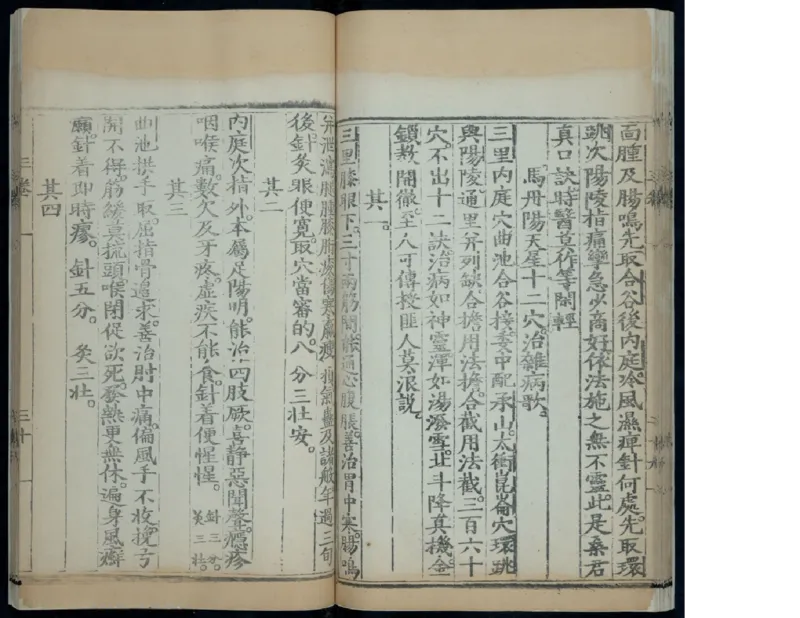 面腫及腸鳴先取合谷後內庭冷風濕痺針何處先取環
跳次陽陵指痛攣急少商好依法施之無不靈此是桑君
真口訣時醫莫作等閑輕
馬丹陽天星十二穴治雜病歌
三里內庭穴曲池合谷接委中配承山太衝崑崙穴環跳
與陽陵通里并列缺合擔用法擔合截用法截三百六十
穴不出十二訣治病如神靈渾如湯潑雪北斗降真機金
鎖教開徹至人可傳授匪人莫浪說
其一
三里膝眼下三寸兩筋間能通心腹脹善治胃中寒腸鳴
并泄瀉腿腫膝胻痠傷寒羸瘦損氣蠱及諸般年過三旬
後針灸眼便寬取穴當審的八分三壯安
其二
內庭次指外本屬足陽明能治四肢厥喜靜惡聞聲癮疹
咽喉痛數欠及牙疼虛疾不能食針着便惺惺針三分灸三壯
其三
曲池拱手取屈指骨邊求善治肘中痛偏風手不收挽弓
開不得筋緩莫梳頭喉閉促欲死發熱更無休遍身風癬
癩針着即時瘳針五分灸三壯
其四
三卷
三十